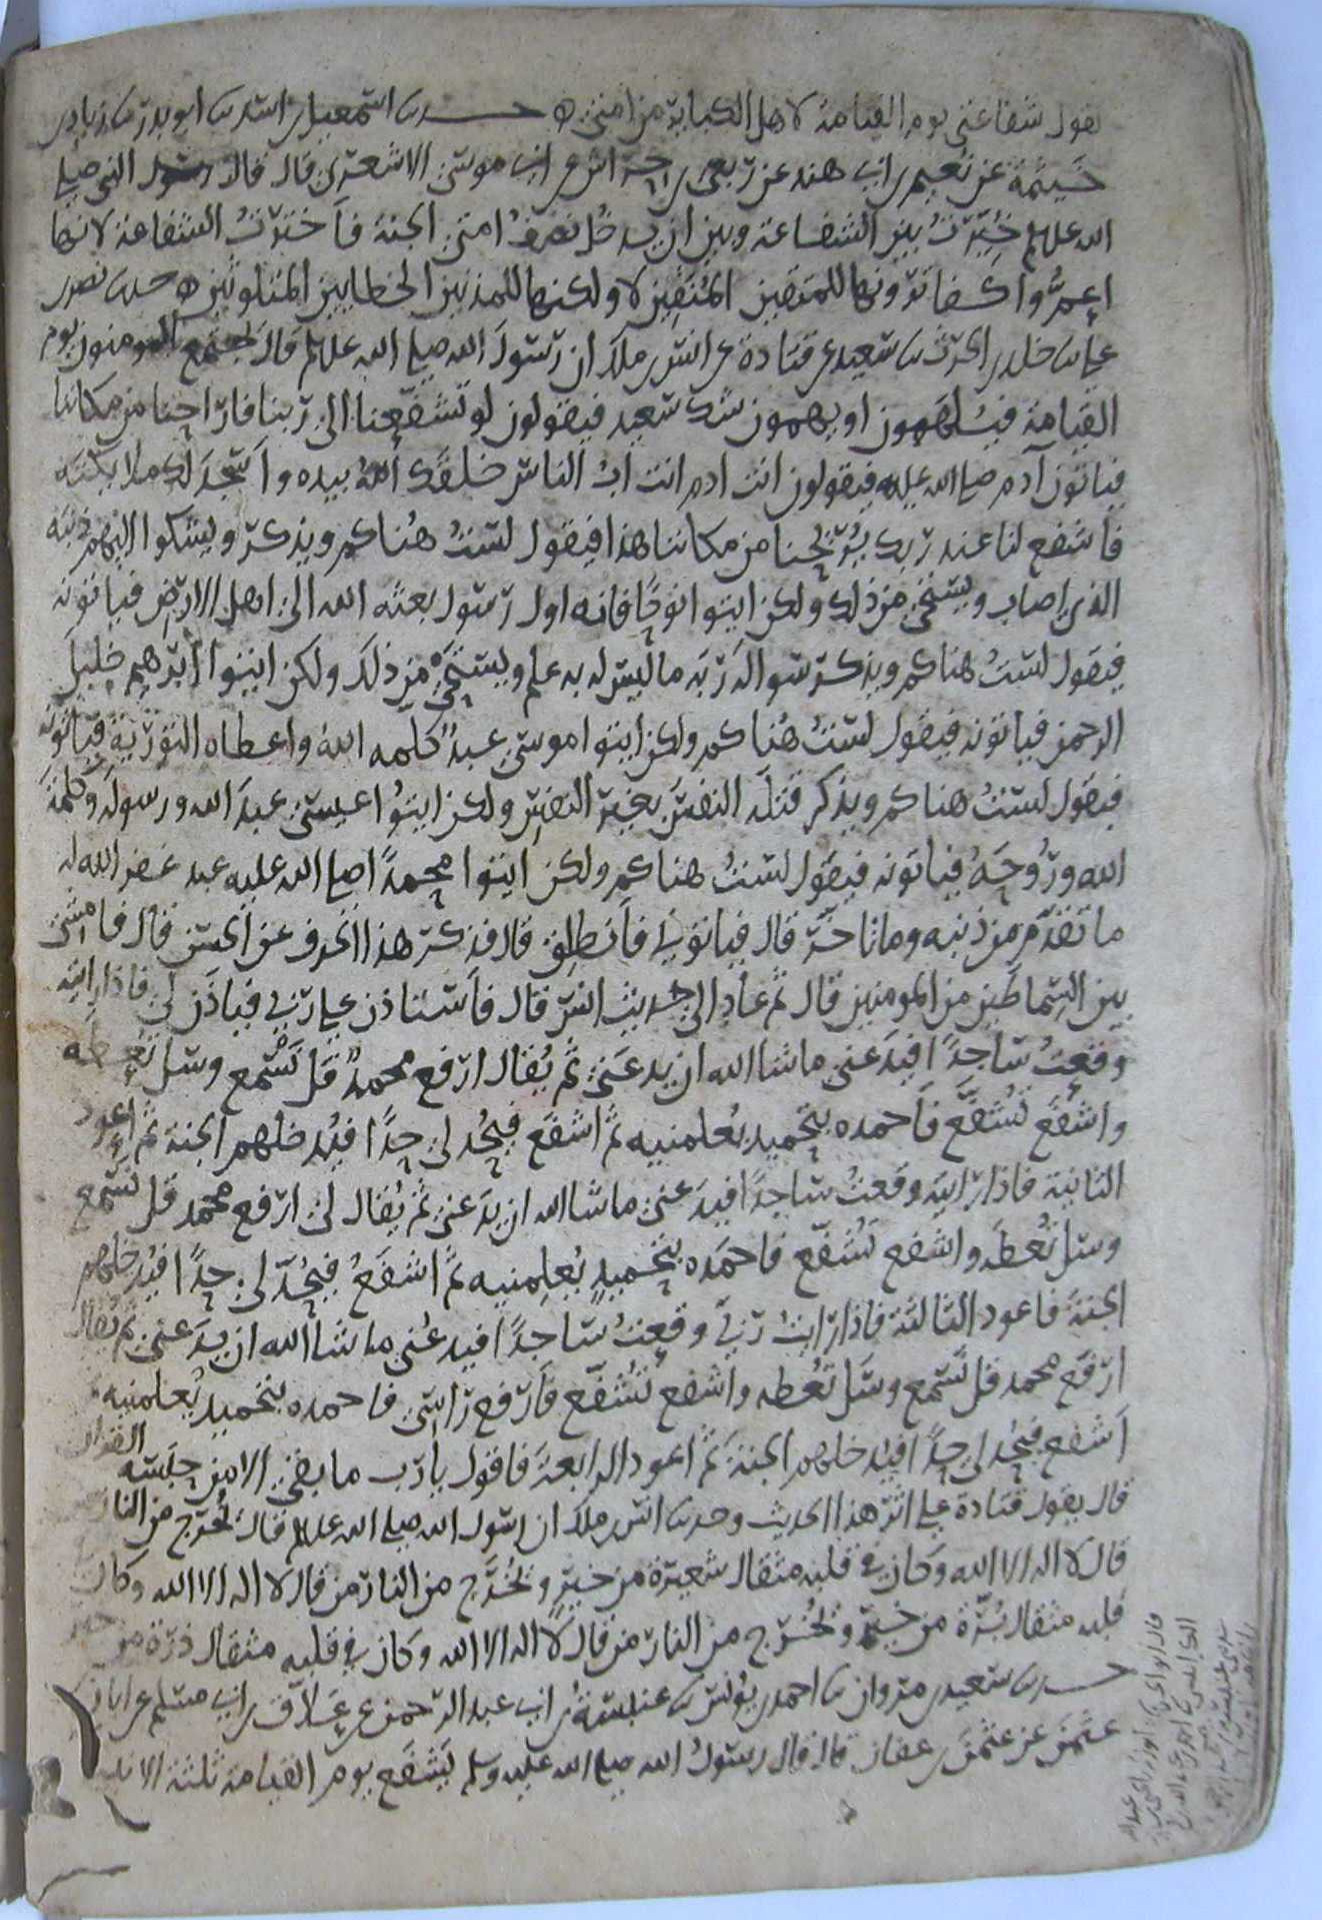 يقول شفاعتي يوم القيامة لاهل الكباير من امتي ه حدثنا اسمعيل بن اسد ثنا ابو بدر ثنا زياد بن
خيثمة عن نعيم بن ابي هند عن ربعي بن حراش عن ابي موسى الاشعري قال قال رسول النبي صلى
الله عليه وسلم خيرت بين الشفاعة وبين ان يدخل نصف امتي الجنة فاخترت الشفاعة لانها
اعم واكفا ترونها للمتقين المتقين لا ولكنها للمذنبين الخطايين المتلوثين ه حدثنا نصر بن
علي ثنا خلد بن الحرث ثنا سعيد عن قتادة عن انس بن ملك ان رسول الله صلى الله عليه وسلم قال يجتمع المومنون يوم
القيامة فيلهمون او يهمون شك سعيد فيقولون لو تشفعنا الى ربنا فاراحنا من مكاننا
فياتون آدم صلى الله عليه فيقولون انت ادم انت اب الناس خلقك الله بيده واسجد لك ملايكته
فاشفع لنا عند ربك يرحنا من مكاننا هذا فيقول لست هناكم ويذكر ويشكوا اليهم ذنبه
الذي اصاب ويستحي من ذلك ولكن ايتوا نوحا فانه اول رسول بعثه الله الى اهل الارض فياتونه
فيقول لست هناكم ويذكر سواله ربه ما ليس له به علم ويستحي من ذلك ولكن ايتوا ابرهيم خليل
الرحمن فياتونه فيقول لست هناكم ولكن ايتوا موسى عبد كلمه الله واعطاه التورية فياتونه
فيقول لست هناكم ويذكر قتله النفس بغير النفس ولكن ايتوا عيسى عبد الله ورسوله وكلمة
الله وروحه فياتونه فيقول لست هناكم ولكن ايتوا محمدا صلى الله عليه عبد غفر الله له
ما تقدم من ذنبه وما تاخر قال فياتوني فانطلق قال فذكر هذا الحرف عن الحسن قال فامشي
بين السماطين من المومنين قال ثم عاد الى حديث انس قال فاستاذن على ربي فياذن لي فاذا رايته
وقعت ساجدا فيدعني ما شا الله ان يدعني ثم يقال ارفع محمد قل تسمع وسل تعطه
واشفع تشفع فاحمده بتحميد يعلمنيه ثم اشفع فيحد لي حدا فيدخلهم الجنة ثم اعود
الثانية فاذا رايته وقعت ساجدا فيدعني ما شا الله ان يدعني ثم يقال لي ارفع محمد قل تسمع
وسل تعطه واشفع تشفع فاحمده بتحميد يعلمنيه ثم اشفع فيحد لي حدا فيدخلهم
الجنة فاعود الثالثة فاذا رايت ربي وقعت ساجدا فيدعني ما شا الله ان يدعني ثم يقال
ارفع محمد قل تسمع وسل تعطه واشفع تشفع فارفع راسي فاحمده بتحميد يعلمنيه
اشفع فيحد لي حدا فيدخلهم الجنة ثم اعود الرابعة فاقول يا رب ما بقي الا من حبسه القران
قال يقول قتادة على اثر هذا الحديث وحدثنا انس بن ملك ان رسول الله صلى الله عليه وسلم قال يخرج من النار
قال لا اله الا الله وكان في قلبه مثقال شعيرة من خير ويخرج من النار من قال لا اله الا الله وكان
قلبه مثقال برة من خير ويخرج من النار من قال لا اله الا الله وكان في قلبه مثقال ذرة من خير
حدثنا سعيد بن مروان ثنا احمد بن يونس ثنا عنبسة بن ابي عبد الرحمن عن علاق بن ابي مسلم عن ابان بن
عثمن عن عثمن بن عفان قال قال رسول الله صلى الله عليه وسلم يشفع يوم القيامة ثلثة الانبيا